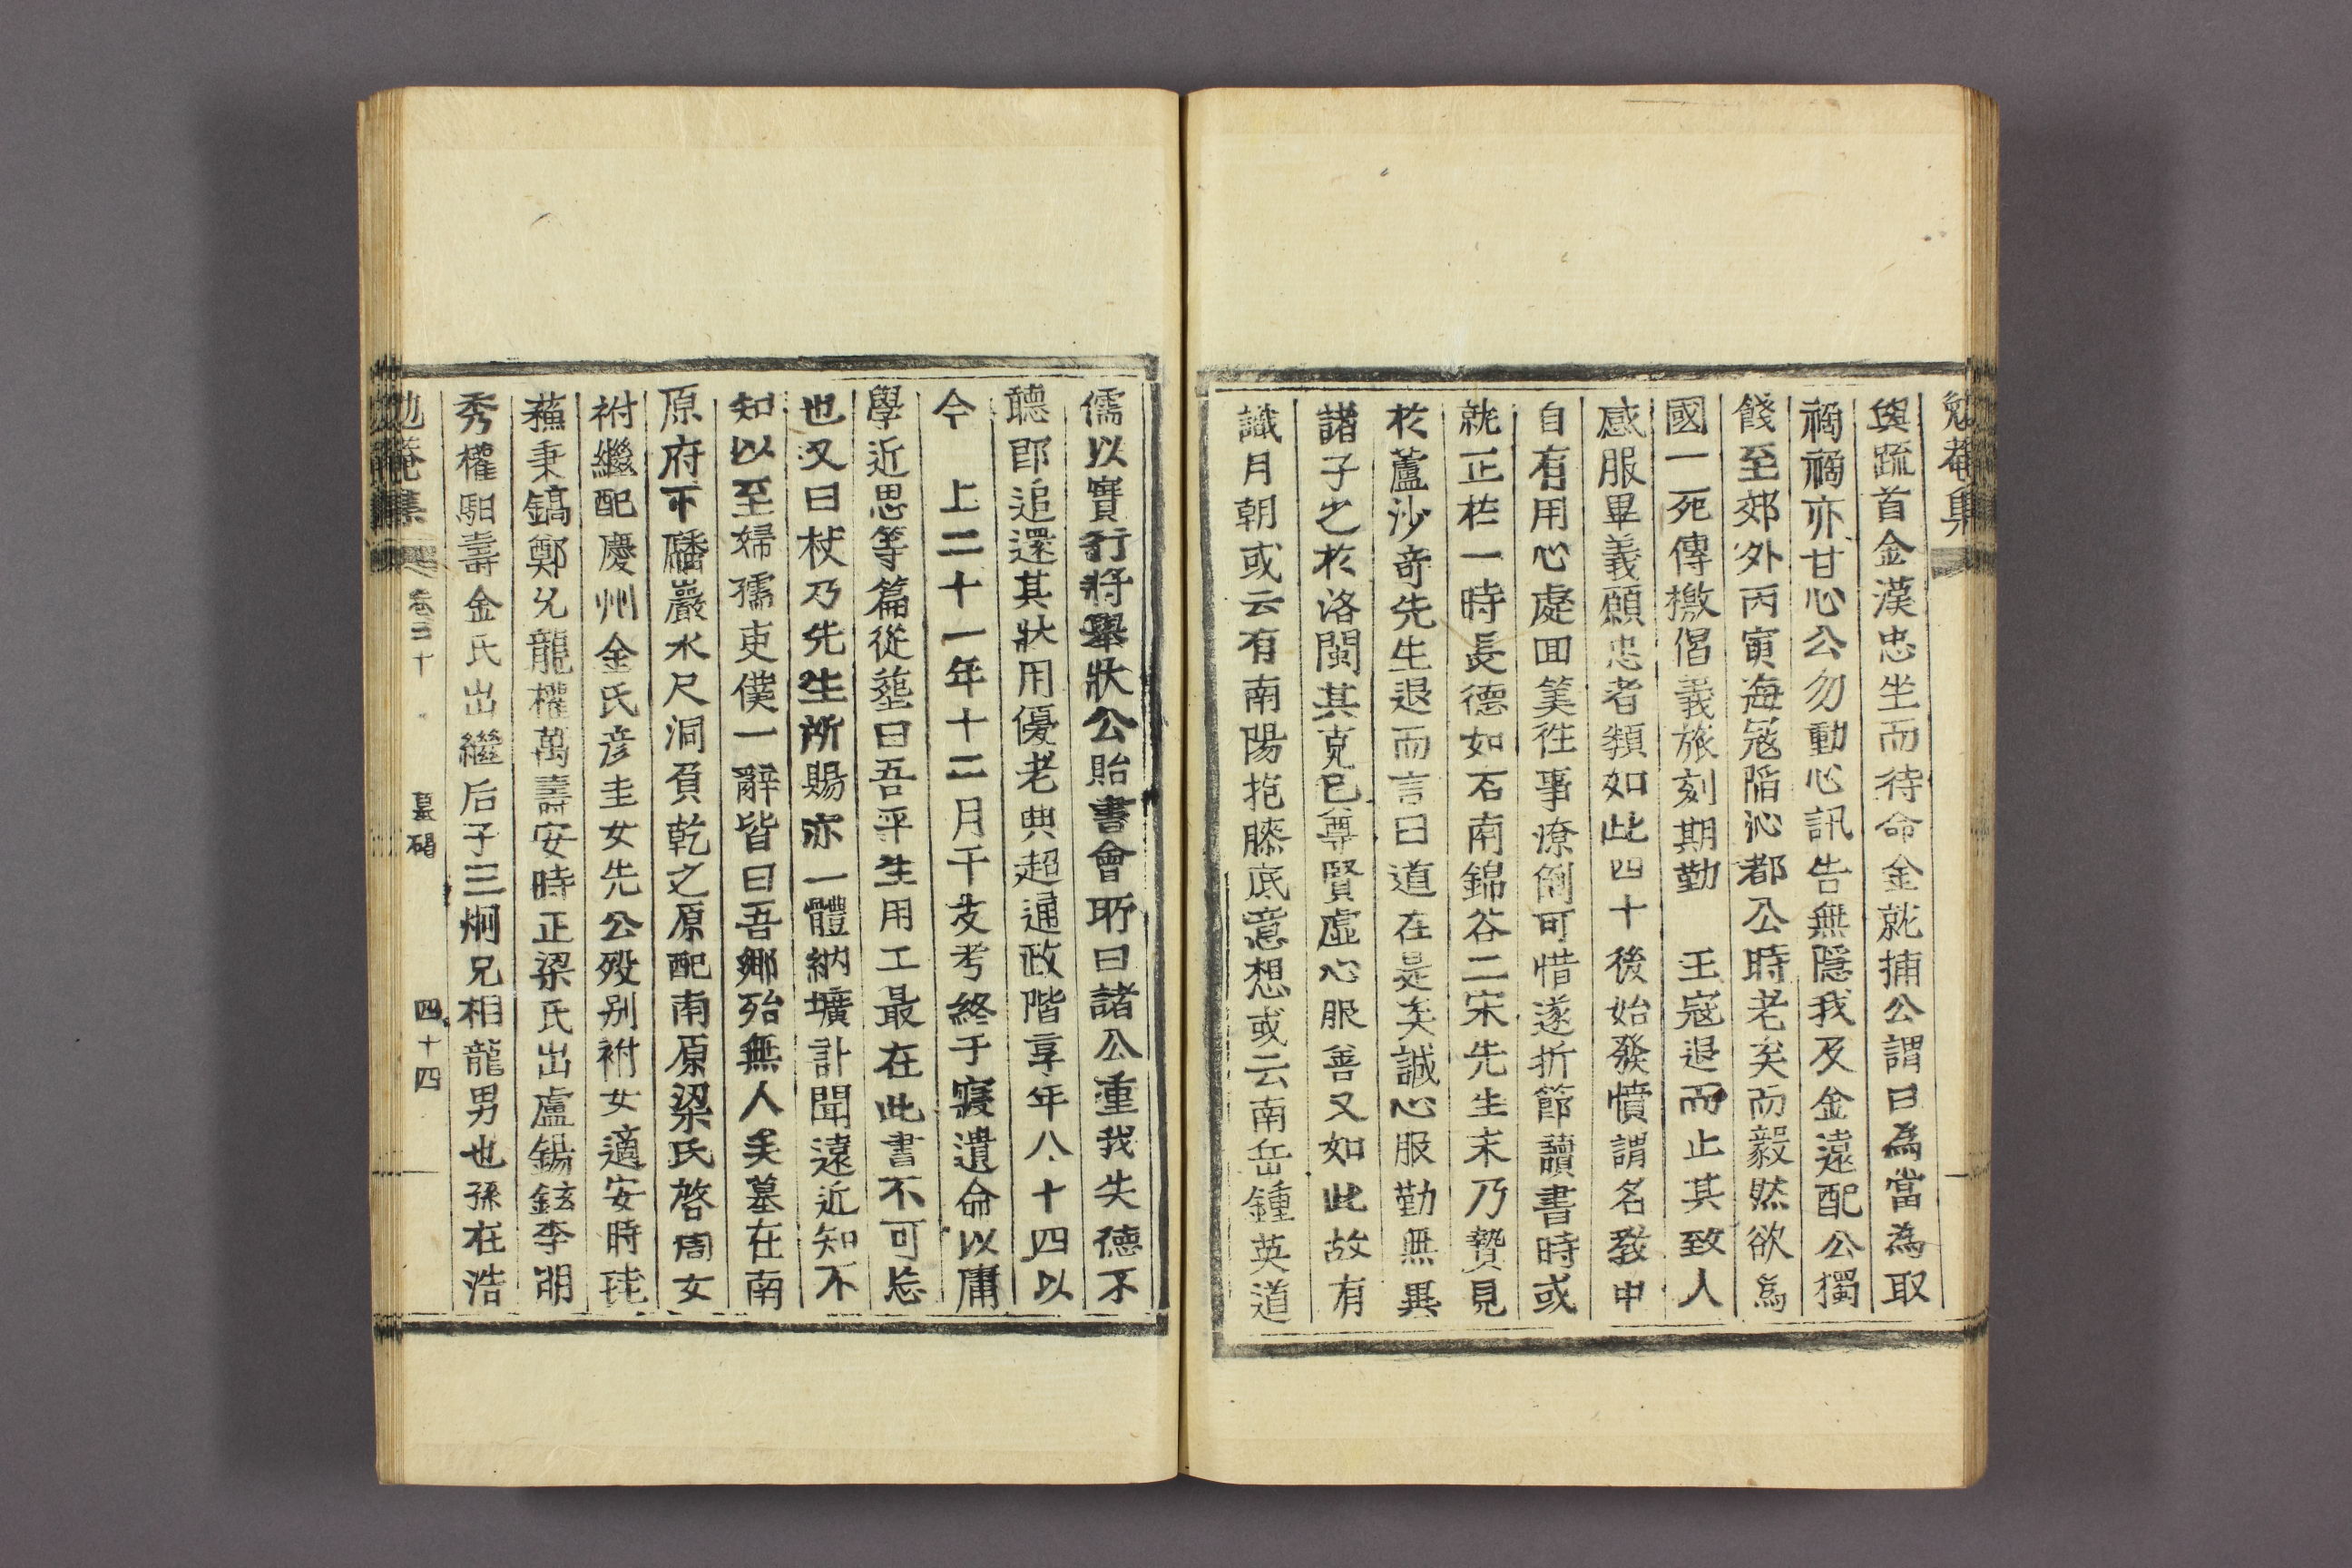 勉菴集
與疏首金漢忠坐而待命金就捕公謂曰為當為取
禍禍亦甘心公勿動心訊告無隱我及金遠配公獨
餞至郊外丙寅海寇陷沁都公時老矣而毅然欲爲
國一死傳檄倡義旅刻期勤　王寇退而止其致人
感服畢義願忠者類如此四十後始發憤謂名敎中
自有用心處回笑徃事潦倒可惜遂折節讀書時或
就正於一時長德如石南錦谷二宋先生末乃贄見
於蘆沙奇先生退而言曰道在是矣誠心服勤無異
諸子之於洛閩其克己尊賢虛心服善又如此故有
識月朝或云有南陽抱膝底意想或云南岳鍾英道
儒以實行將擧狀公貽書會所曰諸公重我失德不
聽郎追還其狀用優老典超通政階享年八十四以
今　上二十一年十二月干支考終于寢遺命以庸
學近思等篇從葬曰吾平生用工最在此書不可忘
也又曰杖乃先生所賜亦一體納壙訃聞遠近知不
知以至婦孺吏僕一辭皆曰吾鄕殆無人矣墓在南
原府下磻巖水尺洞負乾之原配南原梁氏啓周女
祔繼配慶州金氏彦圭女先公歿別祔女適安時珪
蘓秉鎬鄭允龍權萬壽安時正梁氏出盧錫鉉李明
秀權馹壽金氏出繼后子三炯兄相龍男也孫在浩
勉菴集　卷三十　墓碣　四十四